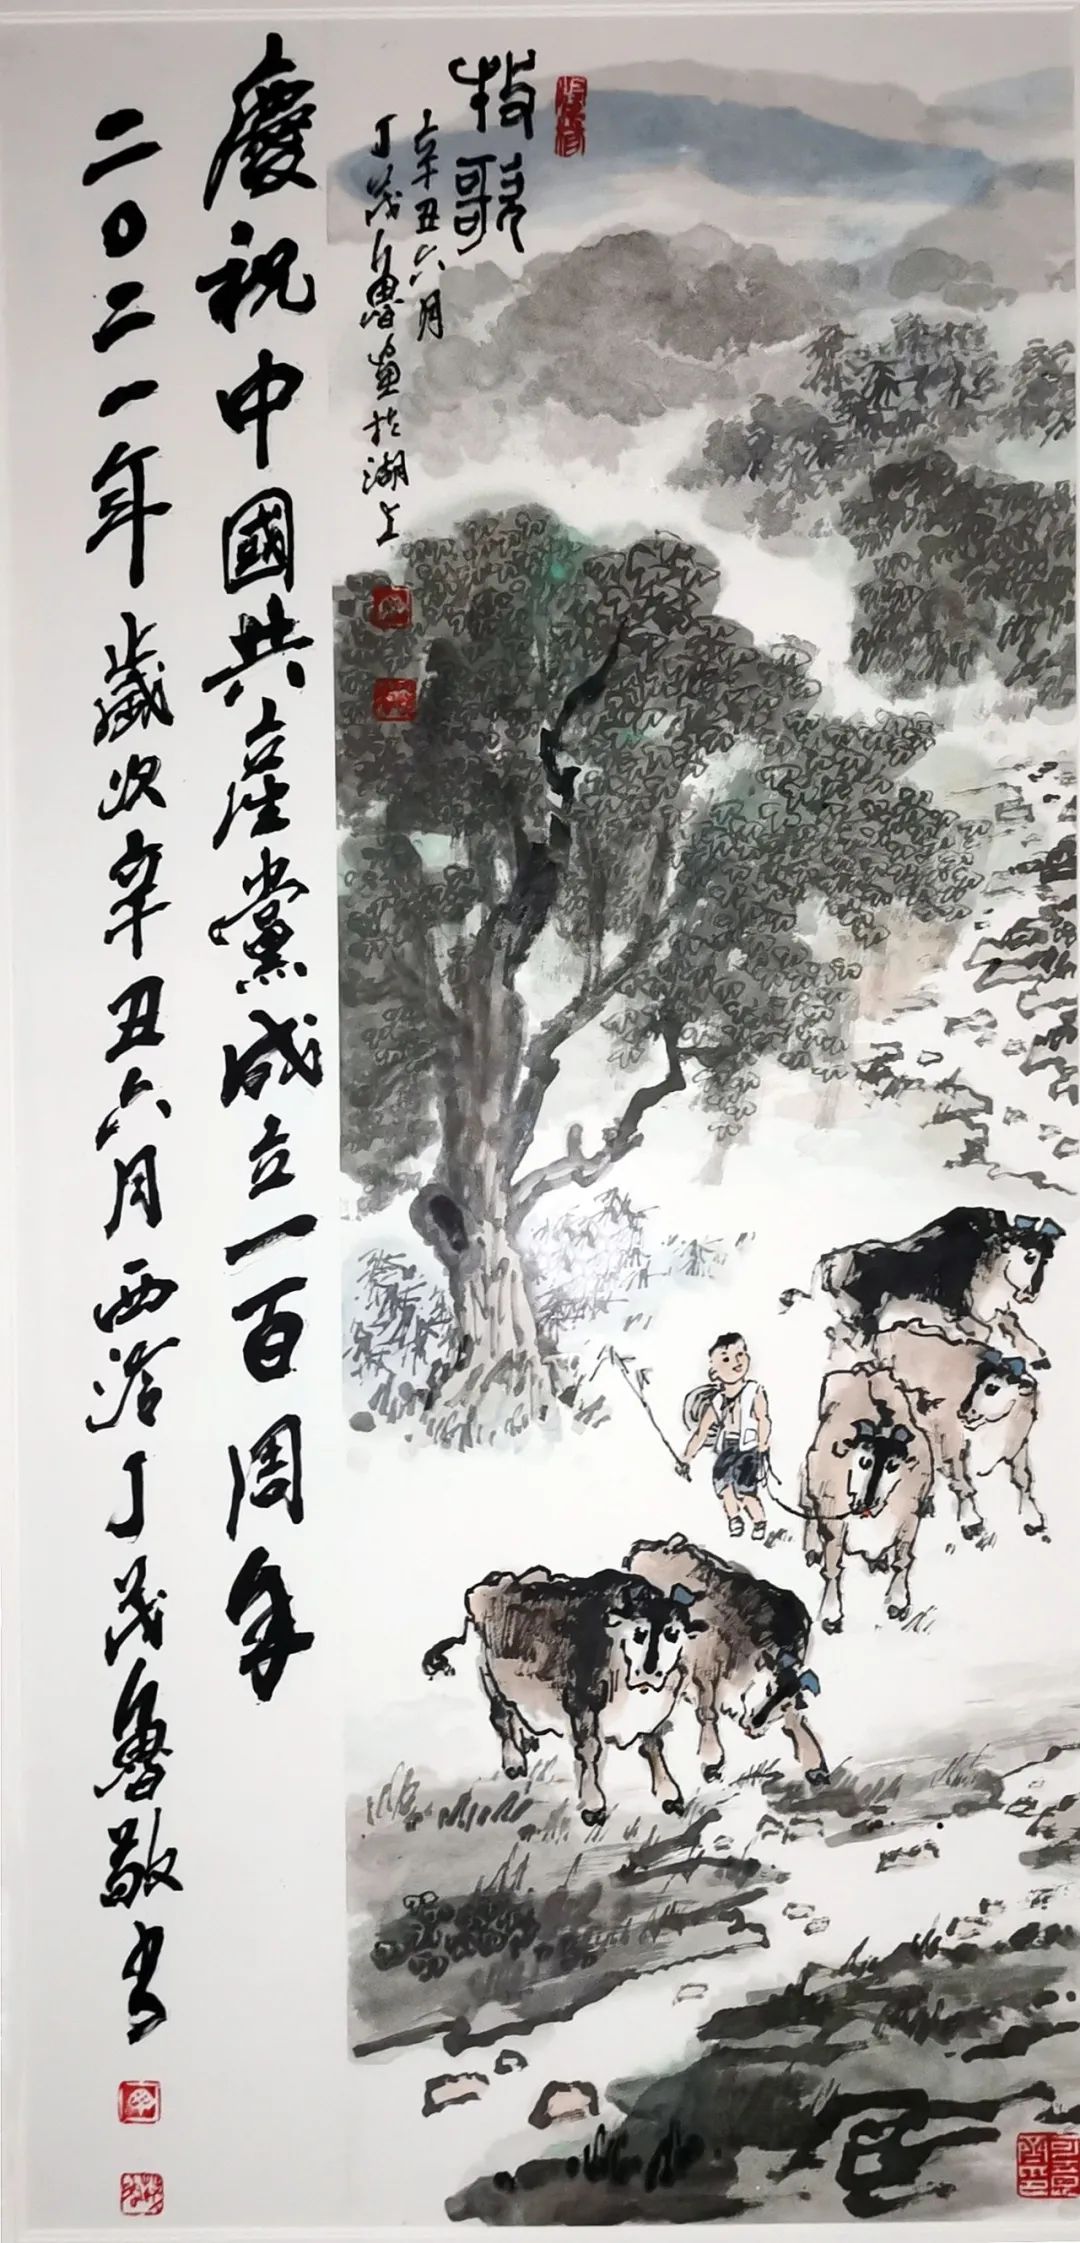 牧歌
辛丑六月
丁茂魯畫於湖上
慶祝中國共產黨成立一百周年
二〇二一年歲次辛丑六月西泠丁茂魯敬书